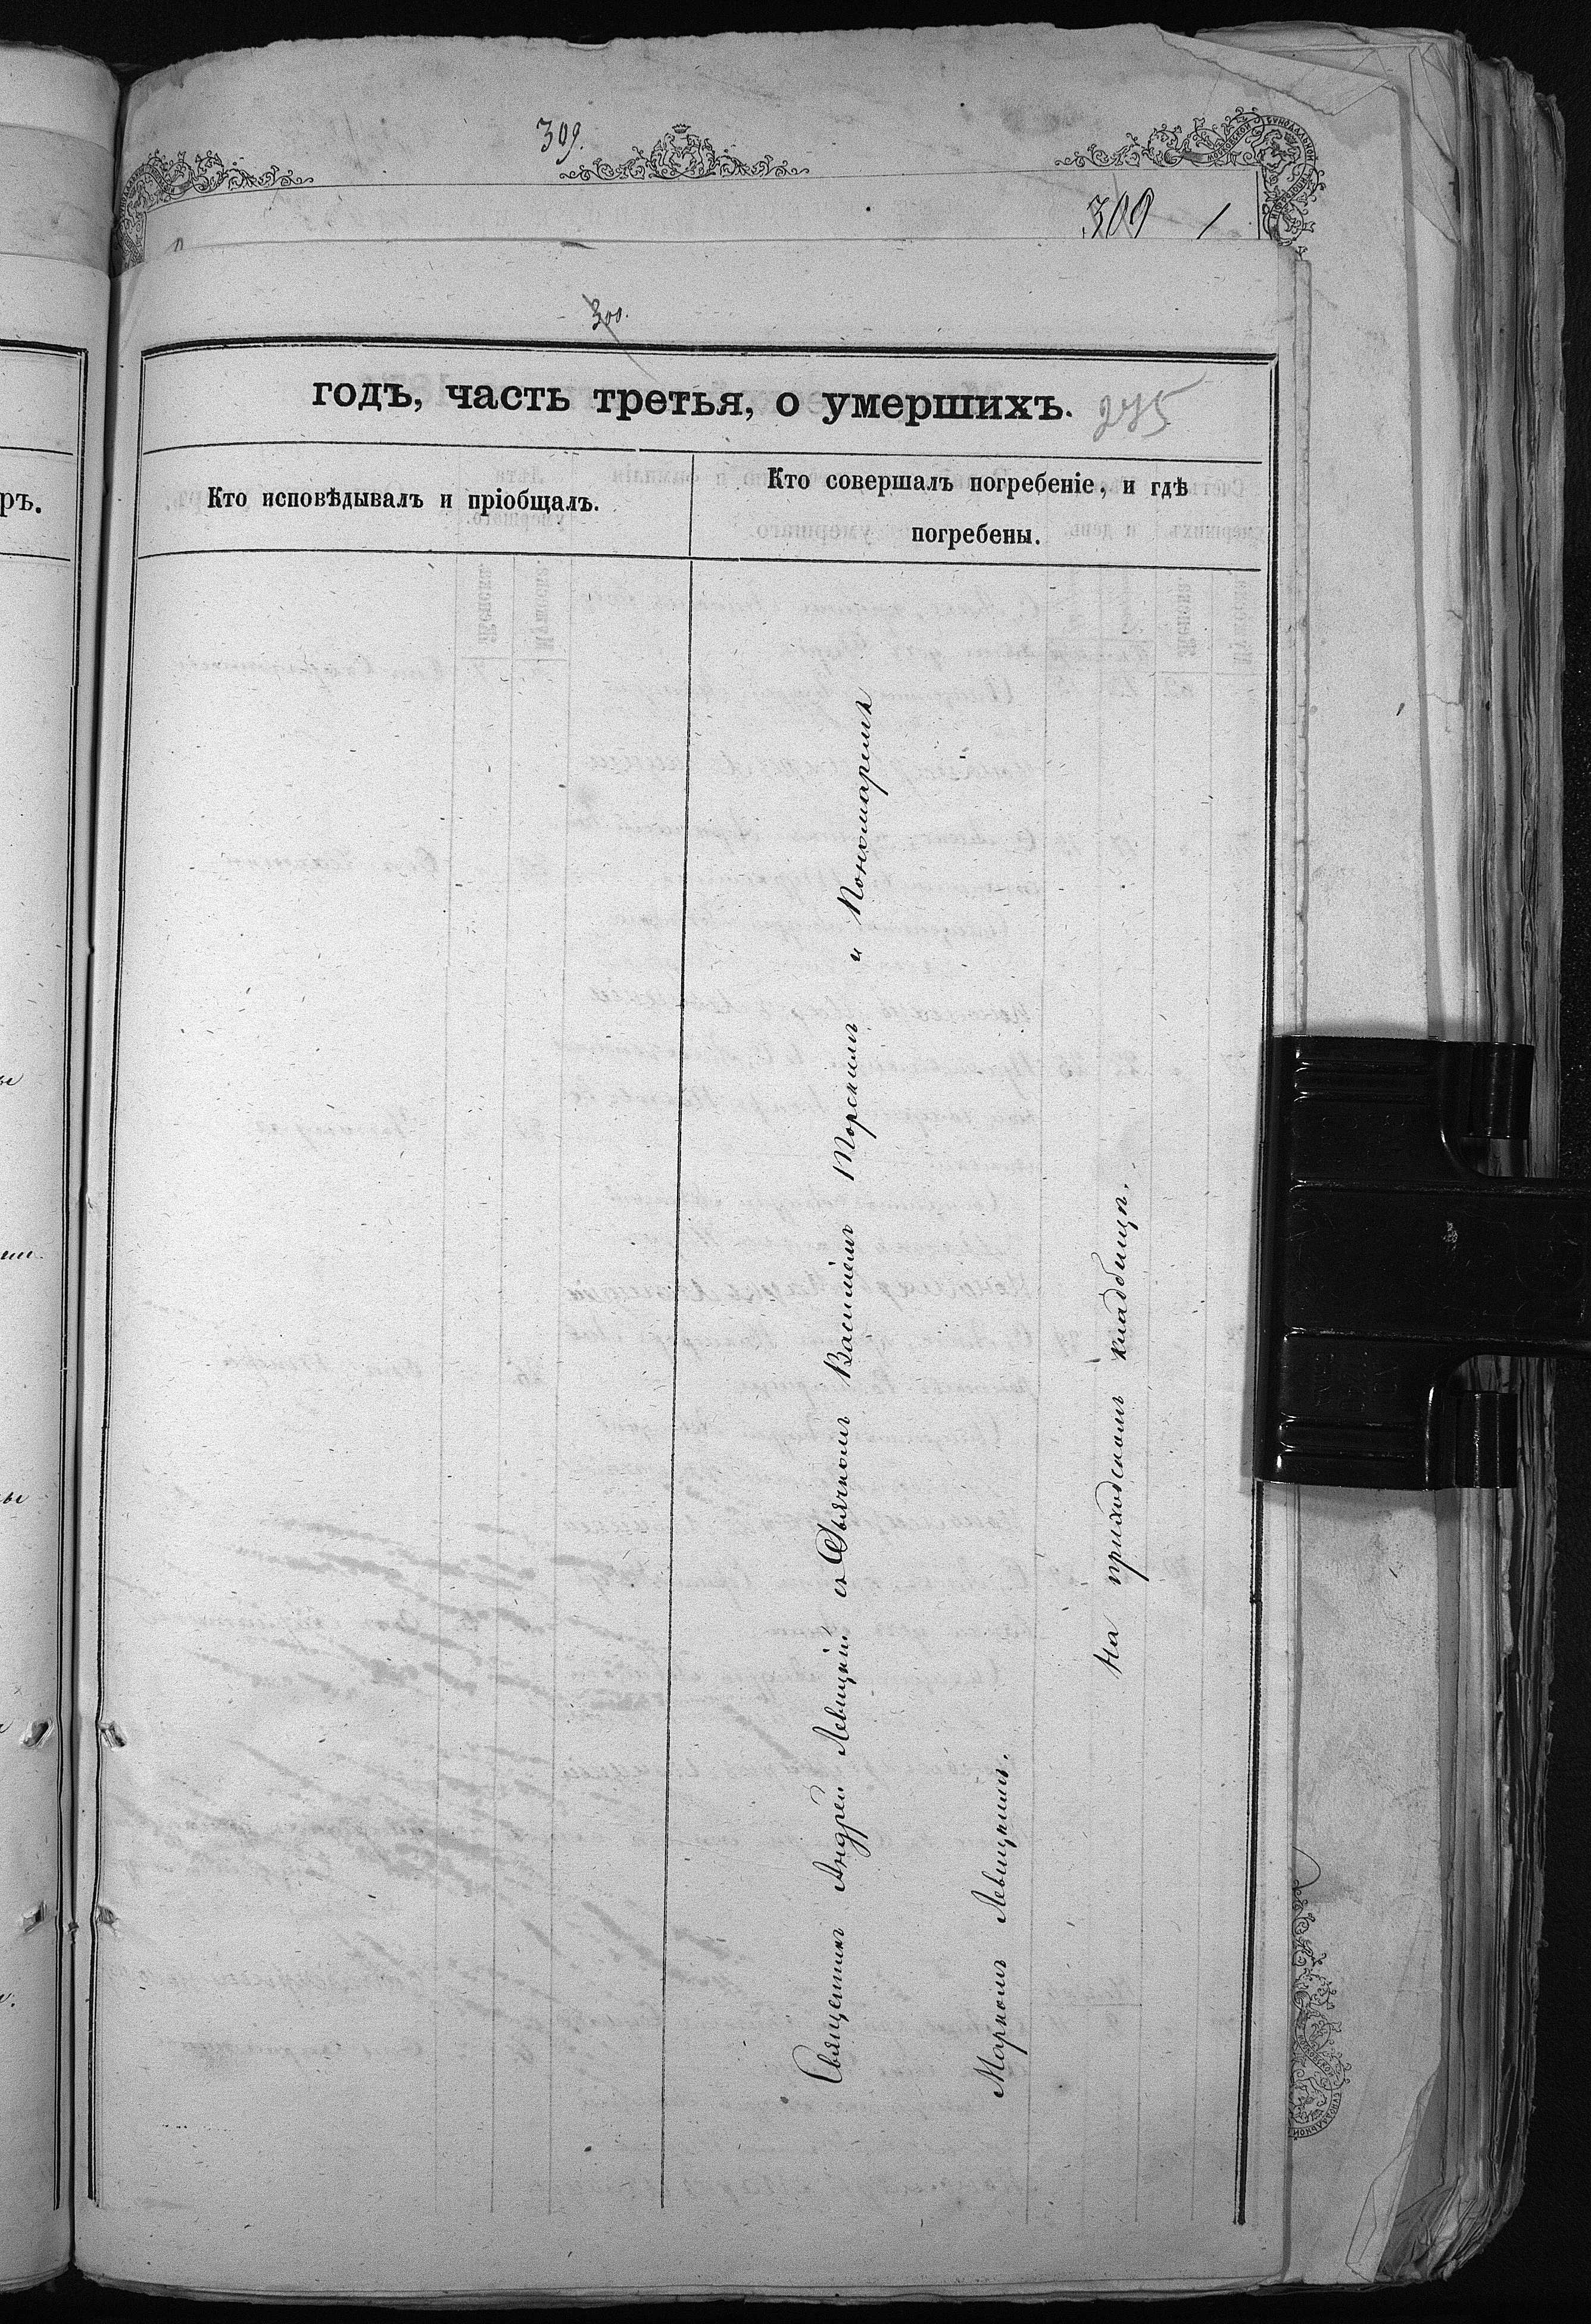 309.
309
300.
годъ, часть третья, о умершихъ.
275
Кто исповѣдывалъ и пріобщалъ.
Кто совершалъ погребеніе, и гдѣ
погребены.
Священникъ Андрей Левицкій съ Дьячкомъ Василіемъ Торскимъ и Пономаремъ
Маркомъ Левицкимъ.
На приходскомъ кладбищѣ.
ръ.